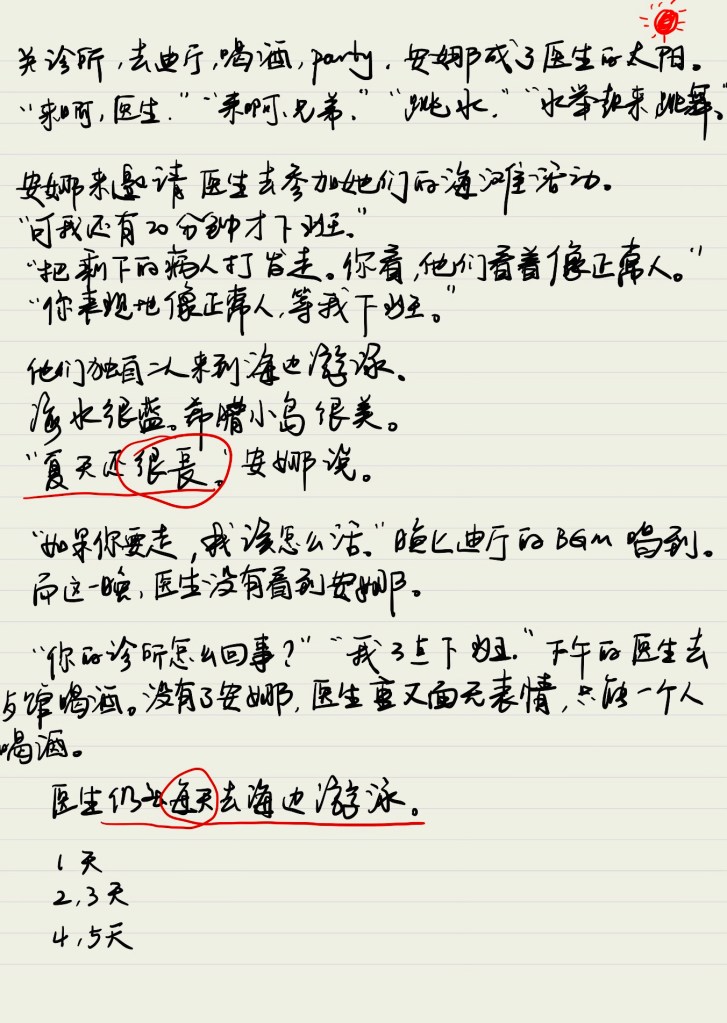 关诊所，去迪厅，喝酒，party，安娜成了医生的太阳。
“来啊，医生。”“来啊，兄弟。”“跳水。”“水举起来跳舞。”
安娜来邀请医生去参加她们的海滩活动。
“可我还有20分钟才下班。”
“把剩下的病人打发走。你看，他们看着像正常人。”
“你表现地像正常人，等我下班。”
他们独自二人来到海边游泳。
海水很蓝。希腊小岛很美。
“夏天还很长。”安娜说。
“如果你要走，我该怎么活。”晚上迪厅的BGM唱到。
而这一晚，医生没有看到安娜。
“你的诊所怎么回事？”“我3点下班。”下午的医生去
与馆喝酒。没有了安娜，医生重又面无表情，只能一个人
喝酒。
医生仍去每天去海边游泳。
1天
2，3天
4，5天